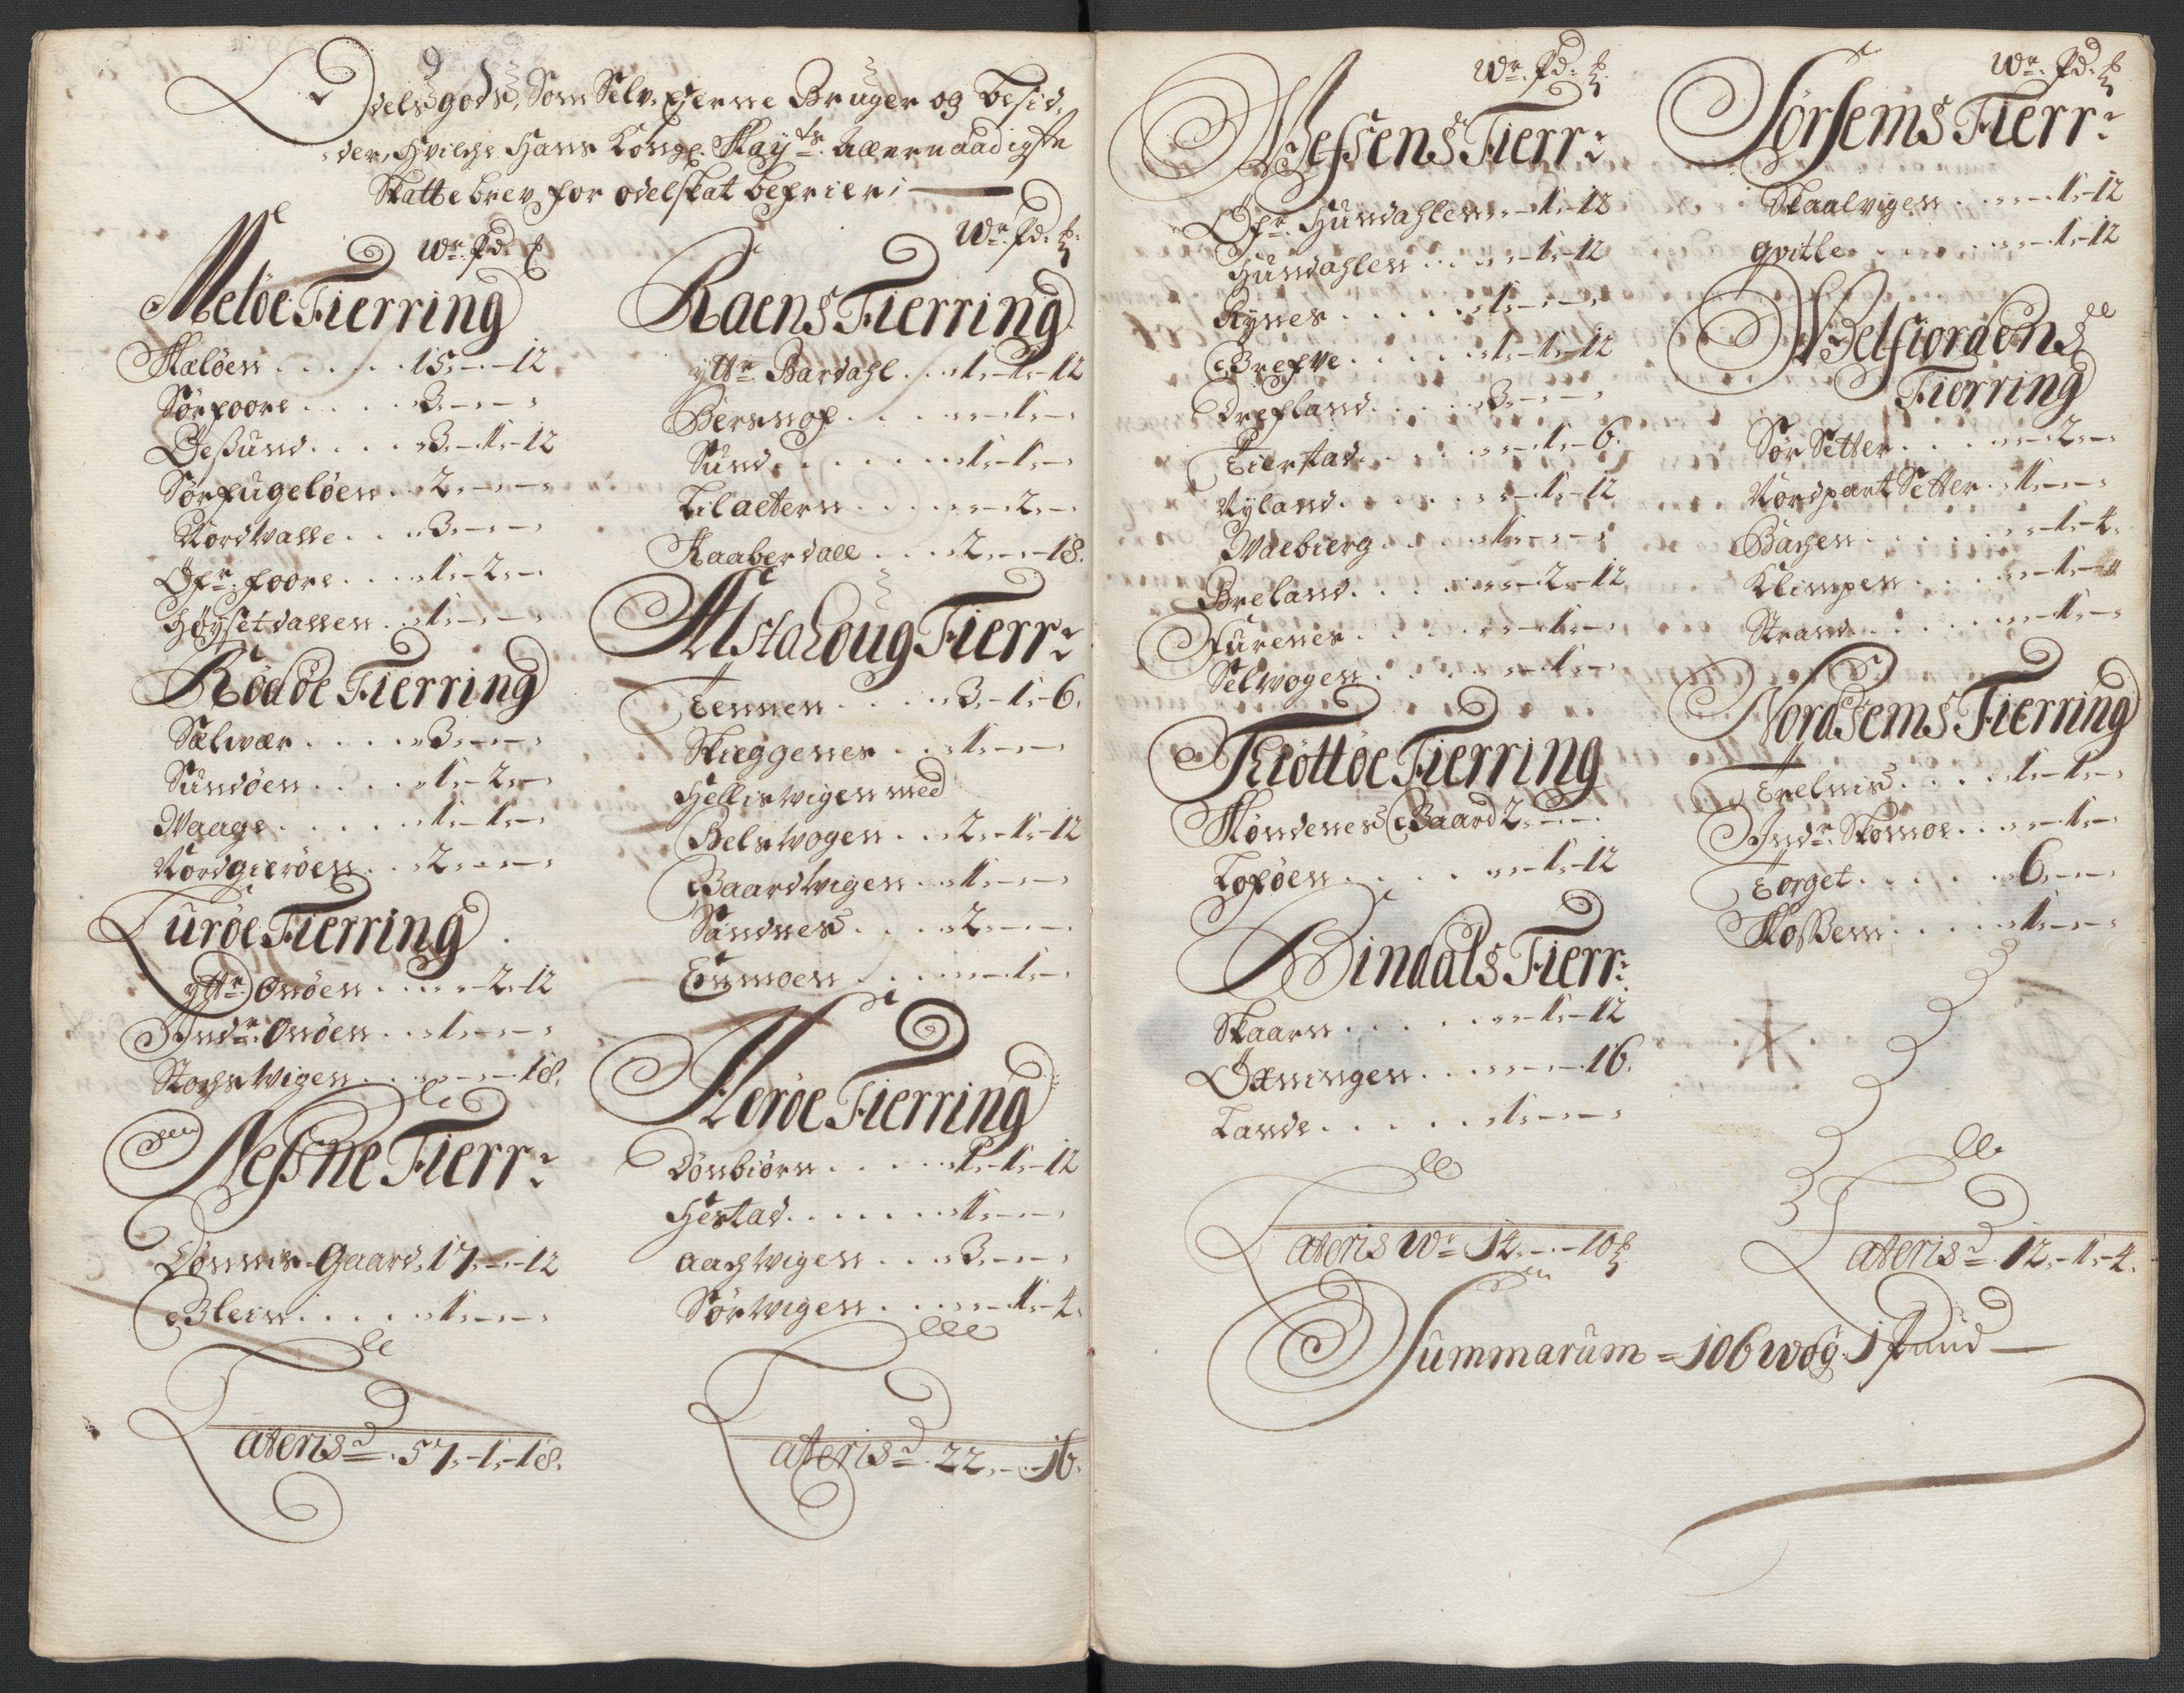 Odelsgods, Som Selv Eierne Bruger og besid,
der, Hvilche Hans Kongl. May ts: Allernaadigste
Skattebrev for odelskat befrier
Wr. Pd. ℔
Meløe Fierring
Mæløen . . . . . 15,-.-12
Sørfoore . . . . 3,-,-,
Øesund . . . . 3,-1,-12
Sørfugeløen . . 2,-,-,
Nordwalle . . . 3,-,-,
Øfr. foore . . . 1,-2,-,
Høysetdallen . . 1,-,-,
Rødøe Fierring
Sælwær . . . . 3,-,-,
Sundøen . . . . 1,-2,-,
Waage . . . . . 1,-1,-,
Nordgierøen . . 2,-,-,
Lurøe Fierring
yttr. Onøen . . . . . -2,-12
Indr. Onøen . . 1,-,-,
Stochwigen . . . ,-,-18.
Neßne Fierr:
Dønnes-Gaard, 17,-.-12
Blein . . . . . 1,-,-,
Lateris d . 57,-1,-18.
Wr. Pd. ℔
Raens Fierring
yttr. Bardahl . . . 1,-1,-12
Bersnof . . . . ,-1,-,
Sund . . . . . . 1,-1,-,
Lilaetern . . . . ,-2,-,
Kaaberdall . . . 2,-,-18.
Alstahoug Fierr:
Tennen . . . . 3,-1,-6.
Skieggenes . . . 1,-,-,
Helleswigen med
Belswogen . . . 2,-1,-12
Baardwigen . . 1,-,-,
Sandnes . . . . 2,-,-,
Einmoen . . . . ,-1,-,
Herøe Fierring
Dønbiørn . . . . . 1,-1,-12
Hestad . . . . . . 1,-,-,
Aachwigen . . . 3,-,-,
Sørwigen . . . . ,-1,-4.
Lateris d . 22,-.-16.
Wr. Pd: ℔
Wefsens Fierr:
Øfr. Hundahlen . . ,-1,-12
Hundahlen . . . . ,-1,-12
Rynes . . . . . . 1,-,-,
Grefve . . . . . . 1,-1,-12
Drefland . . . . . 3,-,-,
Tierstad . . . . ,-1,-6.
Nyland . . . . . ,-1,-12
Walbierg . . . . 1,-,-,
Breland . . . . . ,-2,-12
Furenes . . . . . ,-1,-,
Selwogen . . . . ,-1,-,
Thiøttøe Fierring
Møndenes Gaard 2,-,-,
Loføen . . . . . ,-1,-12
Bindals Fierr:
Skaarn . . . . . ,-1,-12
Øxningen . . . . ,-,-16.
Lande . . . . . . 1,-,-,
Lateris Wr 14,-.-10 ℔
Wr. Pd: ℔
Sørsems Fierr:
Skaalvigen . . . ,-1,-12
Qvitle . . . . . ,-1,-12
Welfiordens
Fierring
Sør Setter . . . ,-2,-,
Nordpart Setter . 1,-,-,
Bachen . . . . . ,-1,-4.
Klimpen . . . . ,-1,-,
Strand . . . . . ,-1,-,
Nordsems Fierring
Trelnis . . . . . 1,-1,-,
Indr. Skomoe . . . ,-1,-,
Torget . . . . . 6,-,-,
Moßem . . . . . 1,-,-,
Lateris d . 12,-1,-4.
Summarum = 106 wog 1 Pund